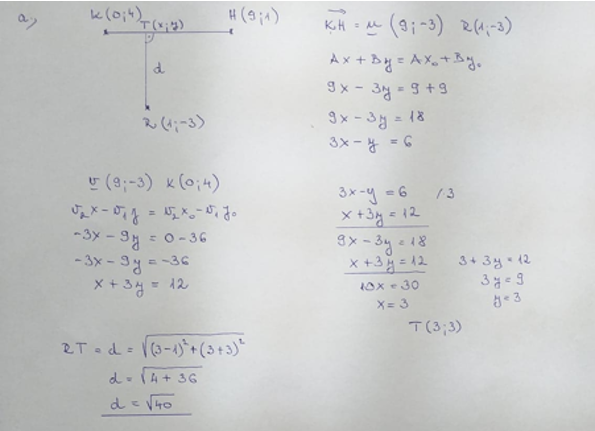 a,
K(0;4) H(9;1)
T(x;y)
d
R(1;-3)
KH = n (9;-3) R(1;-3)
Ax + By = Ax₀ + By₀
9x - 3y = 9 + 9
9x - 3y = 18
3x - y = 6
v (9;-3) K(0;4)
v₂x - v₁y = v₂x₀ - v₁y₀
-3x - 9y = 0 - 36
-3x - 9y = -36
x + 3y = 12
3x - y = 6 /3
x + 3y = 12
9x - 3y = 18
x + 3y = 12
10x = 30
x = 3
3 + 3y = 12
3y = 9
y = 3
T(3;3)
RT = d = √(3-1)² + (3+3)²
d = √4 + 36
d = √40